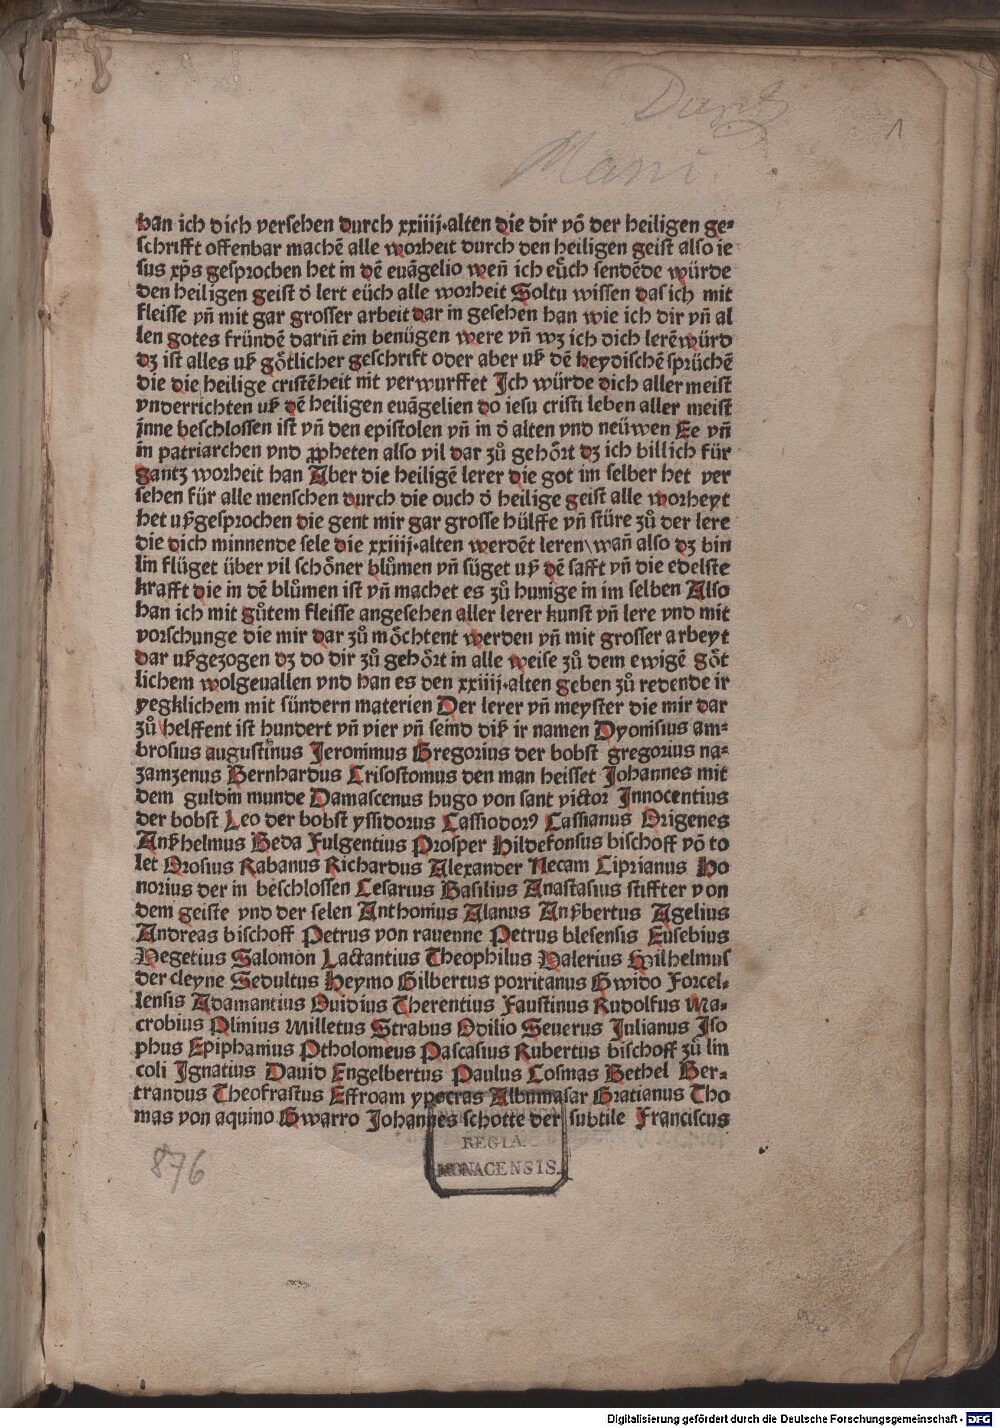 1
han ich dich versehen durch xxiiij·alten die dir vō der heiligen ge⸗
schrifft offenbar machē alle worheit durch den heiligen geist also ie
sus xp̄s gesprochen het in dē euāgelio weñ ich eüch sendēde würde
den heiligen geist d̄ lert eüch alle worheit Soltu wissen das ich mit
fleisse vñ mit gar grosser arbeit dar in gesehen han wie ich dir vñ al
len gotes fründē dariñ ein benügen were vñ wz ich dich lerē würd
dz ist alles uß götlicher geschrift oder aber uß dē heydischē sprüchē
die die heilige cristēheit nit verwurffet Ich würde dich aller meist
vnderrichten uß dē heiligen euāgelien do iesu cristi leben aller meist
īnne beschlossen ist vñ den epistolen vñ in d̄ alten vnd neüwen Ee vñ
in patriarchen vnd ꝓpheten also vil dar zů gehört dz ich billich für
gantz worheit han Aber die heiligē lerer die got im selber het ver
sehen für alle menschen durch die ouch d̄ heilige geist alle worheyt
het ußgesprochen die gent mir gar grosse hülffe vñ stüre zů der lere
die dich minnende sele die xxiiij·alten werdēt leren\ wañ also dz bin
lin flüget über vil schöner blůmen vñ süget uß dē safft vñ die edelste
krafft die in dē blůmen ist vñ machet es zů hunige in im selben Also
han ich mit gůtem fleisse angesehen aller lerer kunst vñ lere vnd mit
vorschunge die mir dar zů möchtent werden vñ mit grosser arbeyt
dar ußgezogen dz do dir zů gehört in alle weise zů dem ewigē göt
lichem wolgeuallen vnd han es den xxiiij·alten geben zů redende ir
yegklichem mit sündern materien Der lerer vñ meyster die mir dar
zů helffent ist hundert vñ vier vñ seind diß ir namen Dyonisius am⸗
brosius augustinus Jeronimus Gregorius der bobst gregorius na⸗
zamzenus Bernhardus Crisostomus den man heisset Johannes mit
dem guldin munde Damascenus hugo von sant victor Innocentius
der bobst Leo der bobst yssidorus Cassiodorꝰ Cassianus Origenes
Anßhelmus Beda Fulgentius Prosper Hildefonsus bischoff vō to
let Orosius Rabanus Richardus Alexander Necam Ciprianus Ho
norius der in beschlossen Cesarius Basilius Anastasius stiffter von
dem geiste vnd der selen Anthonius Alanus Anßbertus Agelius
Andreas bischoff Petrus von rauenne Petrus blesensis Eusebius
Vegetius Salomon Lactantius Theophilus Valerius Wilhelmus
der cleyne Sedultus Heymo Gilbertus porritanus Gwido Forcel⸗
lensis Adamantius Ouidius Therentius Faustinus Rudolfus Ma⸗
crobius Plinius Milletus Strabus Odilio Seuerus Julianus Jso
phus Epiphanius Ptholomeus Pascasius Rubertus bischoff zů lin
coli Ignatius Dauid Engelbertus Paulus Cosmas Bethel Ber⸗
trandus Theofrastus Effroam ypocras Albumasar Gratianus Tho
mas von aquino Gwarro Johannes schotte der subtile Franciscus
REGIA
MONACENSIS.
876
Digitalisierung gefördert durch die Deutsche Forschungsgemeinschaft - DFG